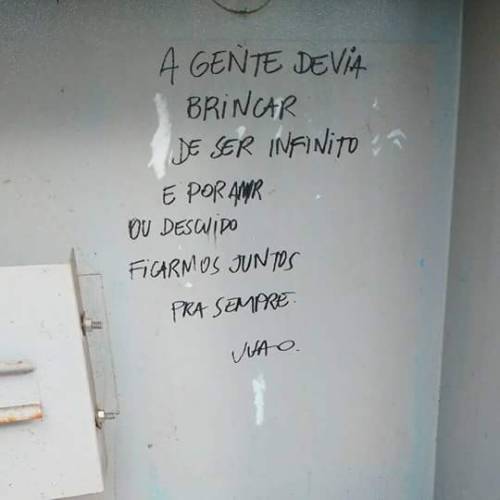 A GENTE DEVIA
BRINCAR
DE SER INFINITO
E POR AMOR
OU DESCUIDO
FICARMOS JUNTOS
PRA SEMPRE.